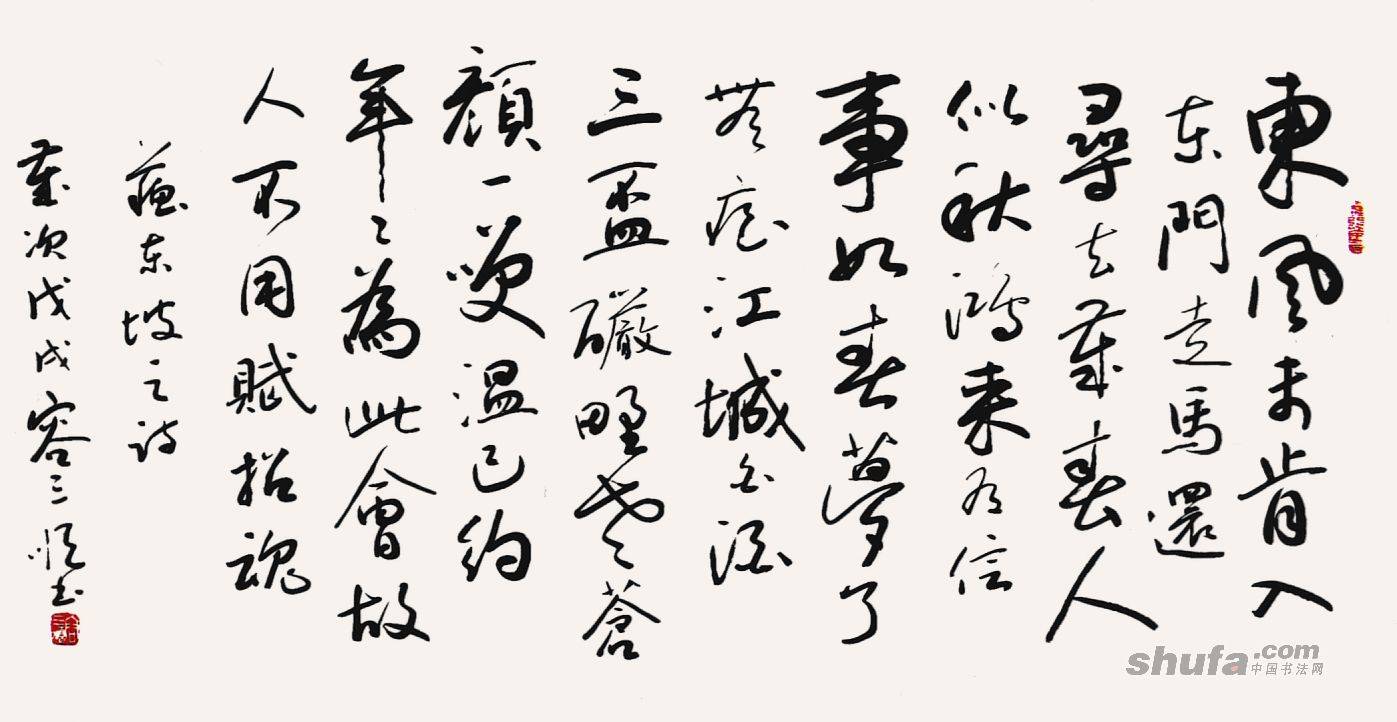 東風未肯入
东門走馬還
尋去歲春人
似秋鴻来有信
事如春夢了
無痕江城白酒
三盃釅野老蒼
顏一笑温已約
年々為此會故
人不用賦招魂
蘓东坡之诗
歲次戊戌容三顺书
shufa.com
中国书法网